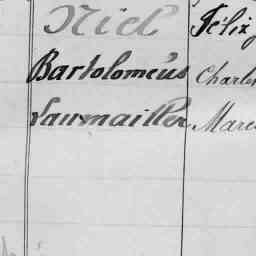 Niel Félix
Bartoloméus Charles
Laumailler Marc